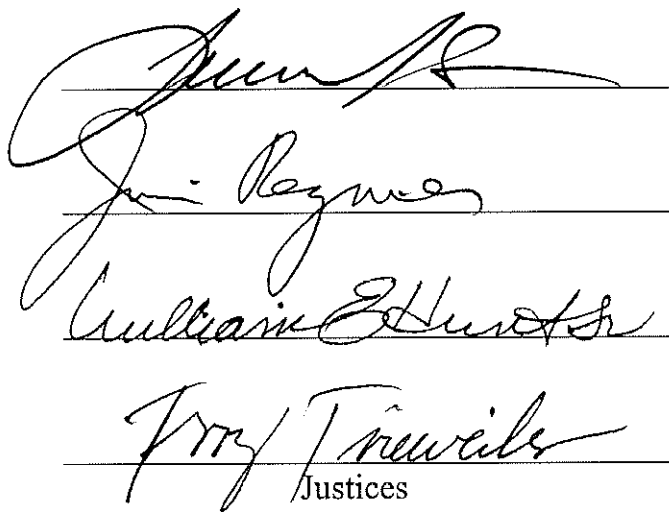 Jim Regnier
William E Hunt Sr
Terry Trieweiler
Justices